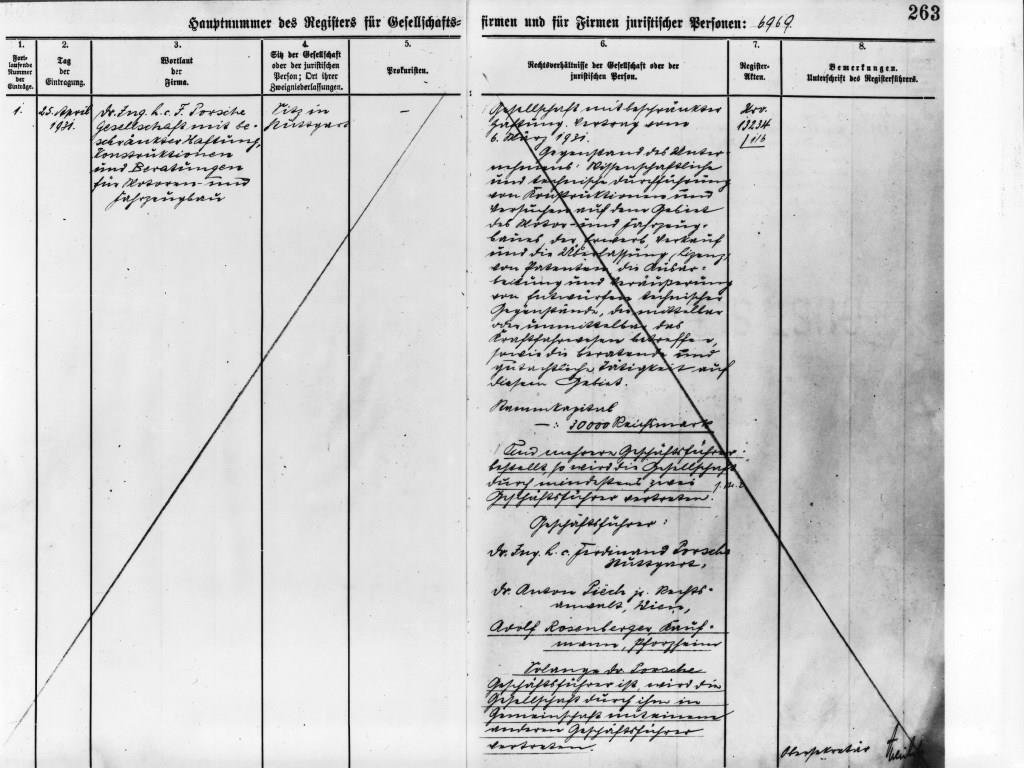 263
Hauptnummer des Registers für Gesellschafts- firmen und für Firmen juristischer Personen: 6969.
1.
Fort-
laufende
Nummer
der
Einträge.
2.
Tag
der
Eintragung.
3.
Wortlaut
der
Firma.
4.
Sitz der Gesellschaft
oder der juristischen
Person; Ort ihrer
Zweigniederlassungen.
5.
Prokuristen.
6.
Rechtsverhältnisse der Gesellschaft oder der
juristischen Person.
7.
Register-
Akten.
8.
Bemerkungen.
Unterschrift des Registerführers.
1.
25. April
1931.
Dr. Ing. h. c. F. Porsche
Gesellschaft mit be-
schränkter Haftung,
Konstruktionen
und Beratungen
für Motoren- und
Fahrzeugbau
Sitz in
Stuttgart
—
Gesellschaft mit beschränkter
Haftung. Vertrag vom
6. März 1931.
Gegenstand des Unter-
nehmens: Wissenschaftliche
und technische Durchführung
von Konstruktionen und
Versuchen auf dem Gebiet
des Motor- und Fahrzeug-
baues, der Erwerb, Verkauf
und die Überlassung (Lizenz)
von Patenten, die Ausar-
beitung und Veräußerung
von Entwürfen technischer
Gegenstände, die mittelbar
oder unmittelbar das
Kraftfahrwesen betreffen,
sowie die beratende und
gutachtliche Tätigkeit auf
diesem Gebiet.
Stammkapital
—: 30000 Reichsmark
Sind mehrere Geschäftsführer
bestellt, so wird die Gesellschaft
durch mindestens zwei
Geschäftsführer vertreten.
Geschäftsführer:
Dr. Ing. h. c. Ferdinand Porsche
Stuttgart,
Dr. Anton Piech jr. Rechts-
anwalt, Wien,
Adolf Rosenberger, Kauf-
mann, Pforzheim
Solange Dr. Porsche
Geschäftsführer ist, wird die
Gesellschaft durch ihn in
Gemeinschaft mit einem
anderen Geschäftsführer
vertreten.
13234
Obersekretär